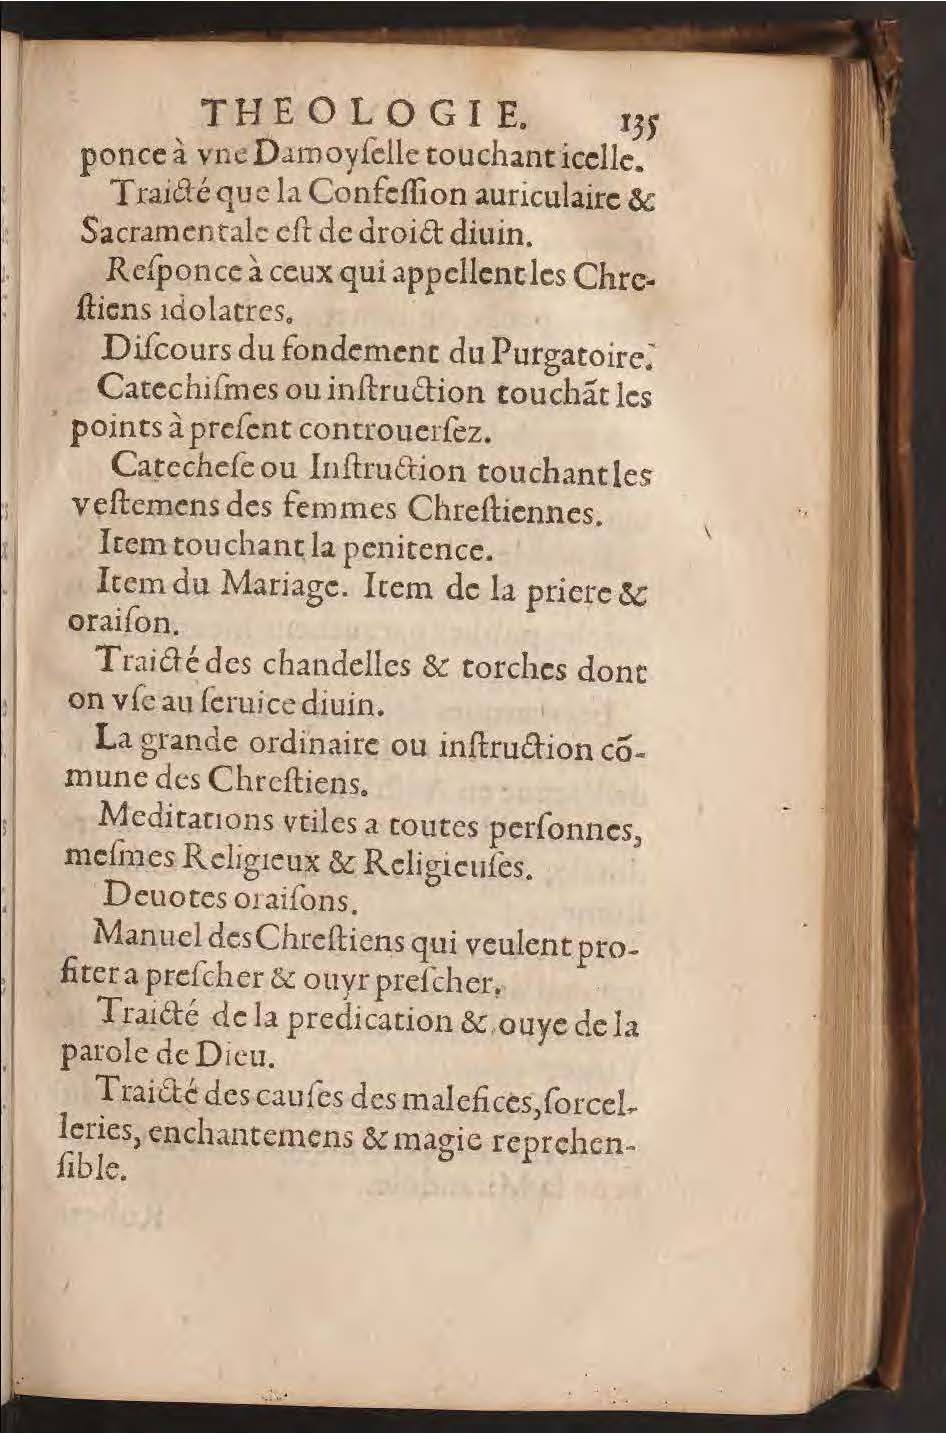 THEOLOGIE. 135
ponce à vne Damoyſelle touchant icelle.
Traicté que la Confeſſion auriculaire &
Sacramentale eſt de droict diuin.
Reſponce à ceux qui appellent les Chre-
ſtiens idolatres.
Diſcours du fondement du Purgatoire.
Catechiſmes ou inſtruction touchãt les
points à preſent controuerſez.
Catecheſe ou Inſtruction touchant les
veſtemens des femmes Chreſtiennes.
Item touchant la penitence.
Item du Mariage. Item de la priere &
oraiſon.
Traicté des chandelles & torches dont
on vſe au ſeruice diuin.
La grande ordinaire ou inſtruction cõ-
mune des Chreſtiens.
Meditations vtiles a toutes perſonnes,
meſmes Religieux & Religieuſes.
Deuotes oraiſons.
Manuel des Chreſtiens qui veulent pro-
fiter a preſcher & ouyr preſcher.
Traicté de la predication & ouye de la
parole de Dieu.
Traicté des cauſes des malefices, ſorcel-
leries, enchantemens & magie reprehen-
ſible.